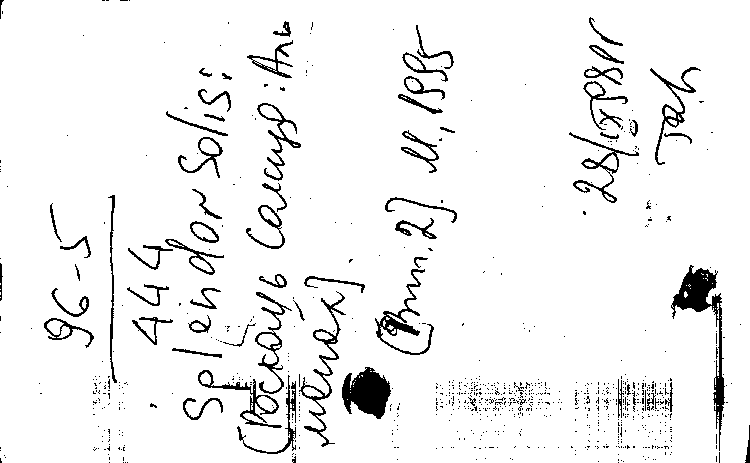 96-5
444
Splendor Solis:
[Роскошь Солнца: Аль
манах].
[Вып. 2]. М., 1995
28/IX 98 г